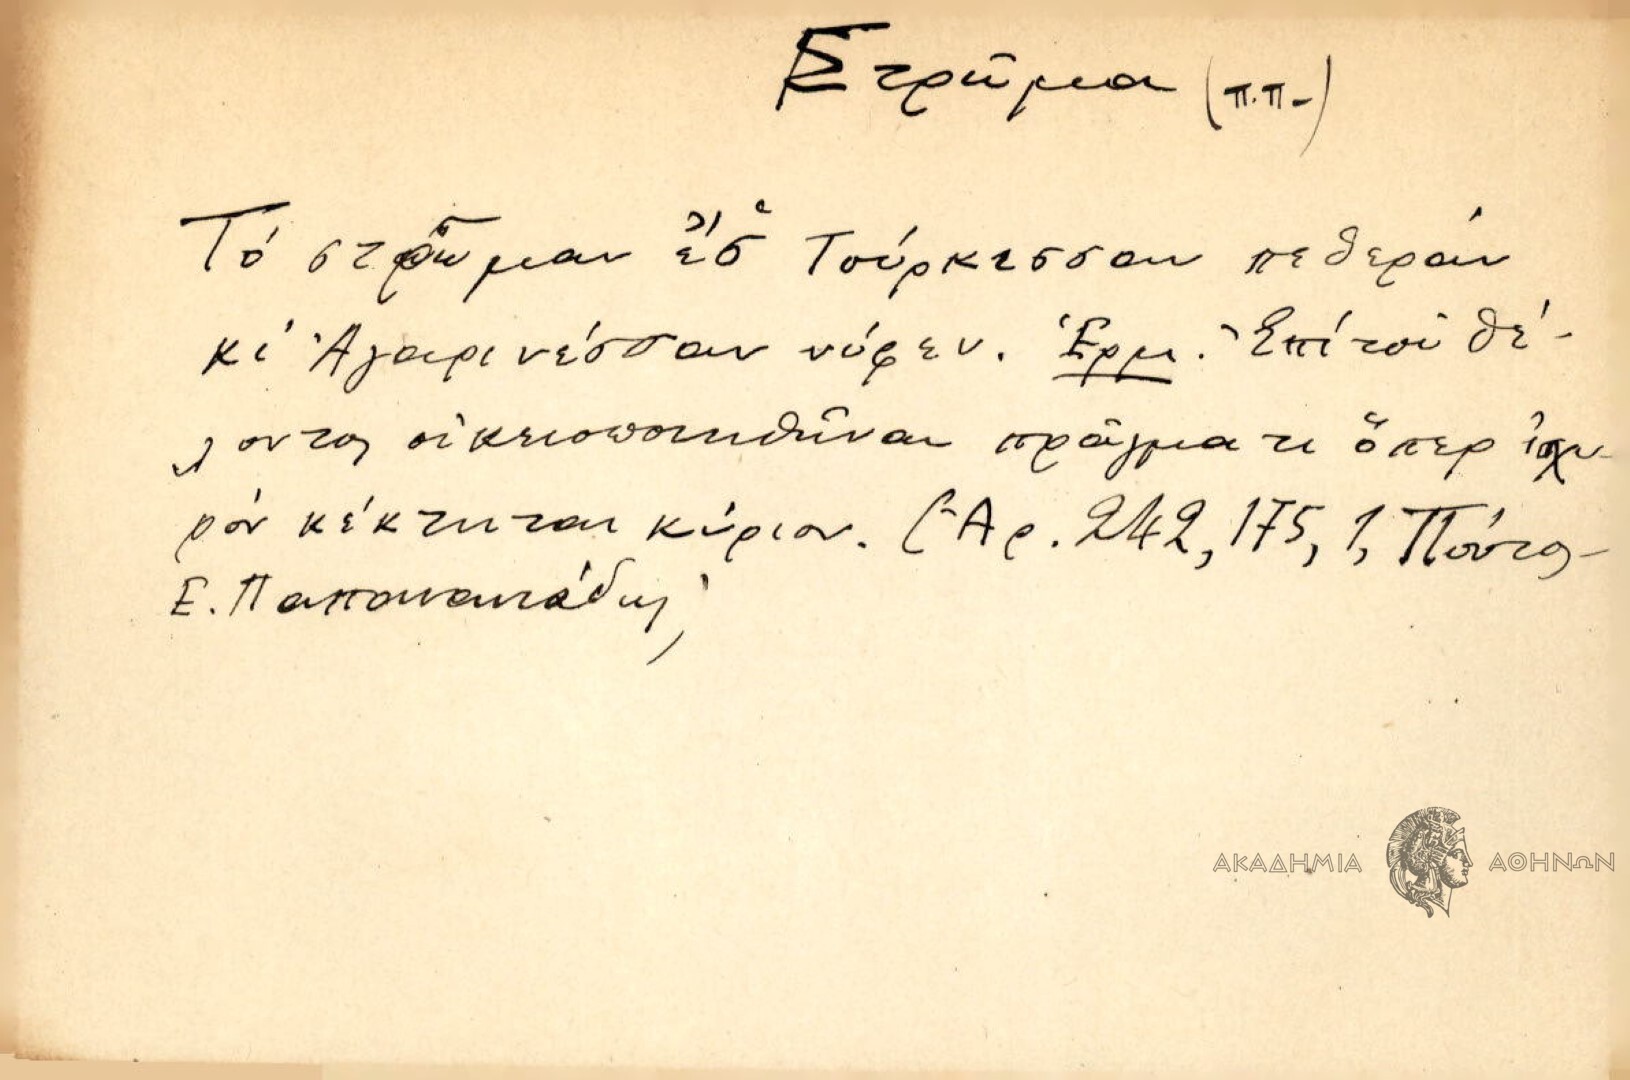 Στρῶμα (π.π.)
Τό στρῶμαν ἔσ̌ Τούρκεσσαν πεθεράν
κι Ἀγαρινέσσαν νύφεν. Ἑρμ. Ἐπί τοῦ θέ-
λοντος οἰκειοποιηθῆναι πρᾶγμα τι ὅπερ ἰσχυ-
ρόν κέκτηται κύριον. (Ἀρ. 242, 175, 1, Πόντος-
Ε. Παπανανιάδης)
ΑΚΑΔΗΜΙΑ ΑΘΗΝΩΝ